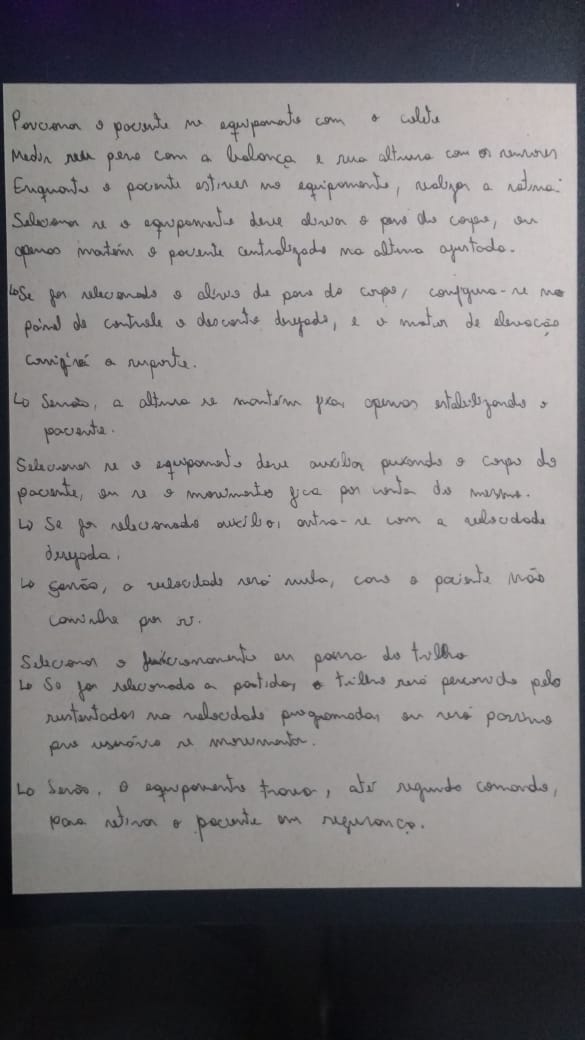 Posicionar o paciente no equipamento com o colete
Medir seu peso com a balança e sua altura com os sensores
Enquanto o paciente estiver no equipamento, realizar a rotina:
Selecionar se o equipamento deve aliviar o peso do corpo, ou
apenas mantém o paciente centralizado na altura ajustada.
↳ Se for selecionado o alívio de peso do corpo, configura-se no
painel de controle o desconto desejado, e o motor de elevação
corrigirá o suporte.
↳ Senão, a altura se mantém fixa, apenas estabilizando o
paciente.
Selecionar se o equipamento deve auxiliar puxando o corpo do
paciente, ou se o movimento fica por conta do mesmo.
↳ Se for selecionado auxílio, entra-se com a velocidade
desejada.
↳ Senão, a velocidade será nula, caso o paciente não
caminhe por si.
Selecionar o funcionamento ou pausa do trilho
↳ Se for selecionado a partida, o trilho será percorrido pelo
sustentador na velocidade programada, ou será passivo
pro usuário se movimentar.
↳ Senão, o equipamento trava, até segundo comando,
para retirar o paciente em segurança.